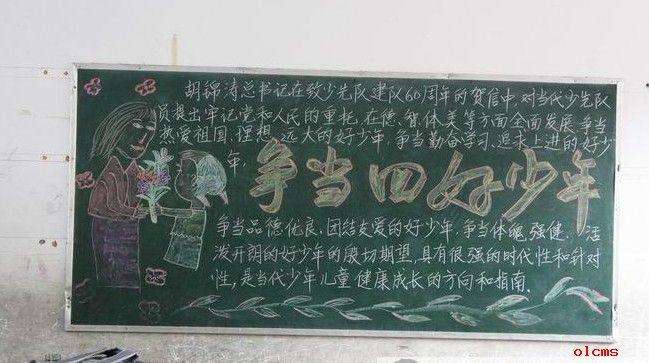 胡锦涛总书记在致少先队建队60周年的贺信中,对当代少先队
员提出牢记党和人民的重托,在德、智、体、美等方面全面发展,争当
热爱祖国、理想远大的好少年,争当勤奋学习、追求上进的好少
年,
争当四好少年
争当品德优良、团结友爱的好少年,争当体魄强健、活
泼开朗的好少年的殷切期望,具有很强的时代性和针对
性,是当代少年儿童健康成长的方向和指南.
olcms